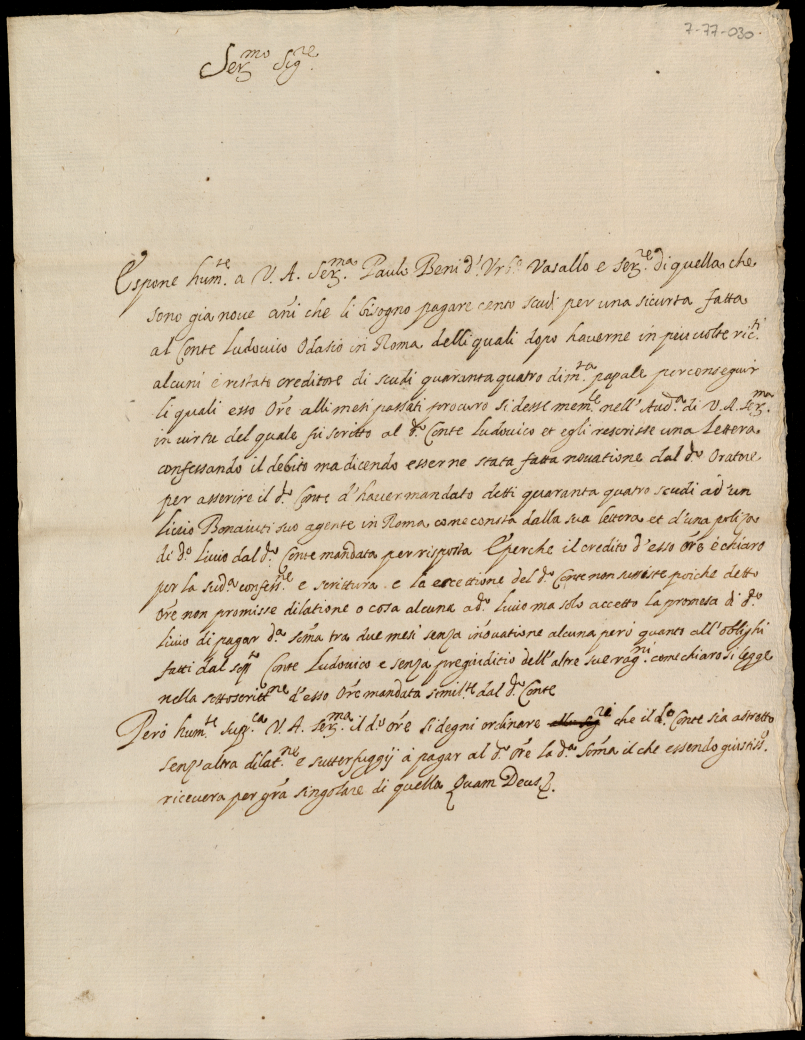 7-77-030.
Ser.mo Sig.re
Espone hum.te a V. A. Ser.ma Paulo Beni d'Urb.o Vasallo e ser.re di quella che
sono gia nove añi che li bisogno pagare cento scudi per una sicurta fatta
al Conte Ludovico Odasio in Roma delli quali dopo haverne in piu volte ric.ti
alcuni è restato creditore di scudi quaranta quatro di m.ta papale per conseguir
li quali esso Ore alli mesi passati procurò si desse mem.le nell'Aud.a di V. A. Ser.ma
in virtu del quale fu scritto al d.o Conte Ludovico et egli rescrisse una Lettera
confessando il debito ma dicendo esserne stata fatta novatione dal d.o Oratore
per asserire il d.o Conte d'haver mandato detti quaranta quatro scudi ad un
Livio Bonaiuti suo agente in Roma come consta dalla sua lettera et d'una poliza
di d.o Livio dal d.o Conte mandata per risposta E perche il credito d'esso Ore è chiaro
per la sud.a confess.ne e scrittura e la eccettione del d.o Conte non sussiste poiche detto
Ore non promisse dilatione o cosa alcuna a d.o Livio ma solo accettò la promesa di d.o
Livio di pagar d.a soma tra due mesi senza inovatione alcuna però quanto all'oblighi
fatti dal Conte Ludovico e senza pregiuditio dell'altre sue rag.ni come chiaro si legge
nella sottoscritt.ne d'esso Ore mandata simil.te dal d.o Conte
Però hum.te sup.ca V. A. Ser.ma il d.o Ore si degni ordinare che il d.o Conte sia astretto
senz'altra dilat.ne e sutterfuggij à pagar al d.o Ore la d.a soma il che essendo giustiss.o
ricevera per gra singolare di quella Quam Deus